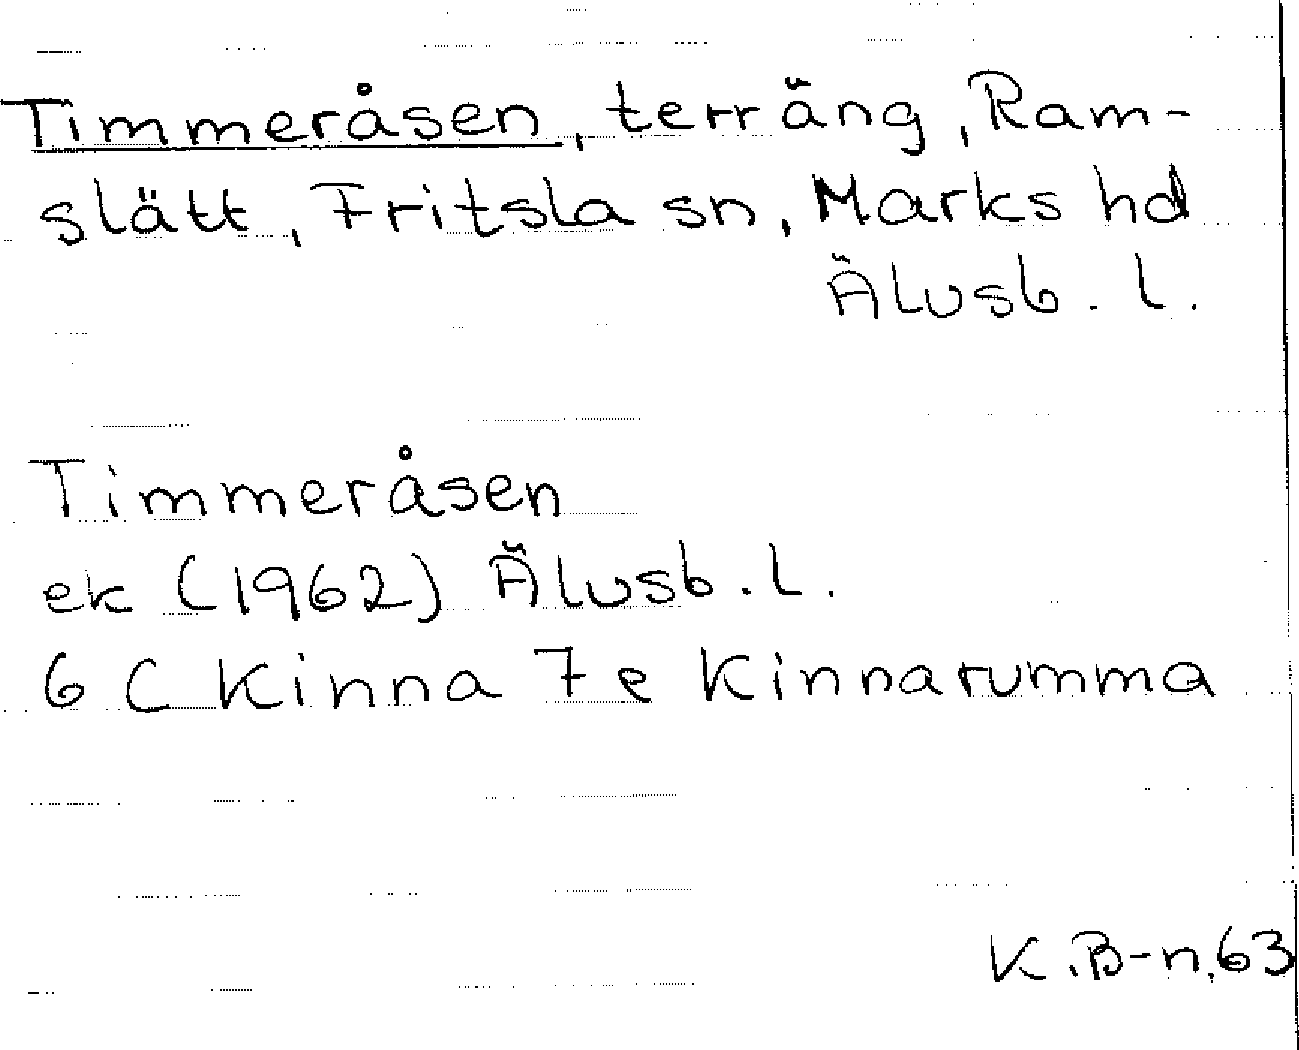 Timmeråsen, terräng, Ram-
slätt, Fritsla sn, Marks hd
Älvsb. l.
Timmeråsen
ek (1962) Älvsb. l.
6 C Kinna 7 e Kinnarumma
K.B-n.63